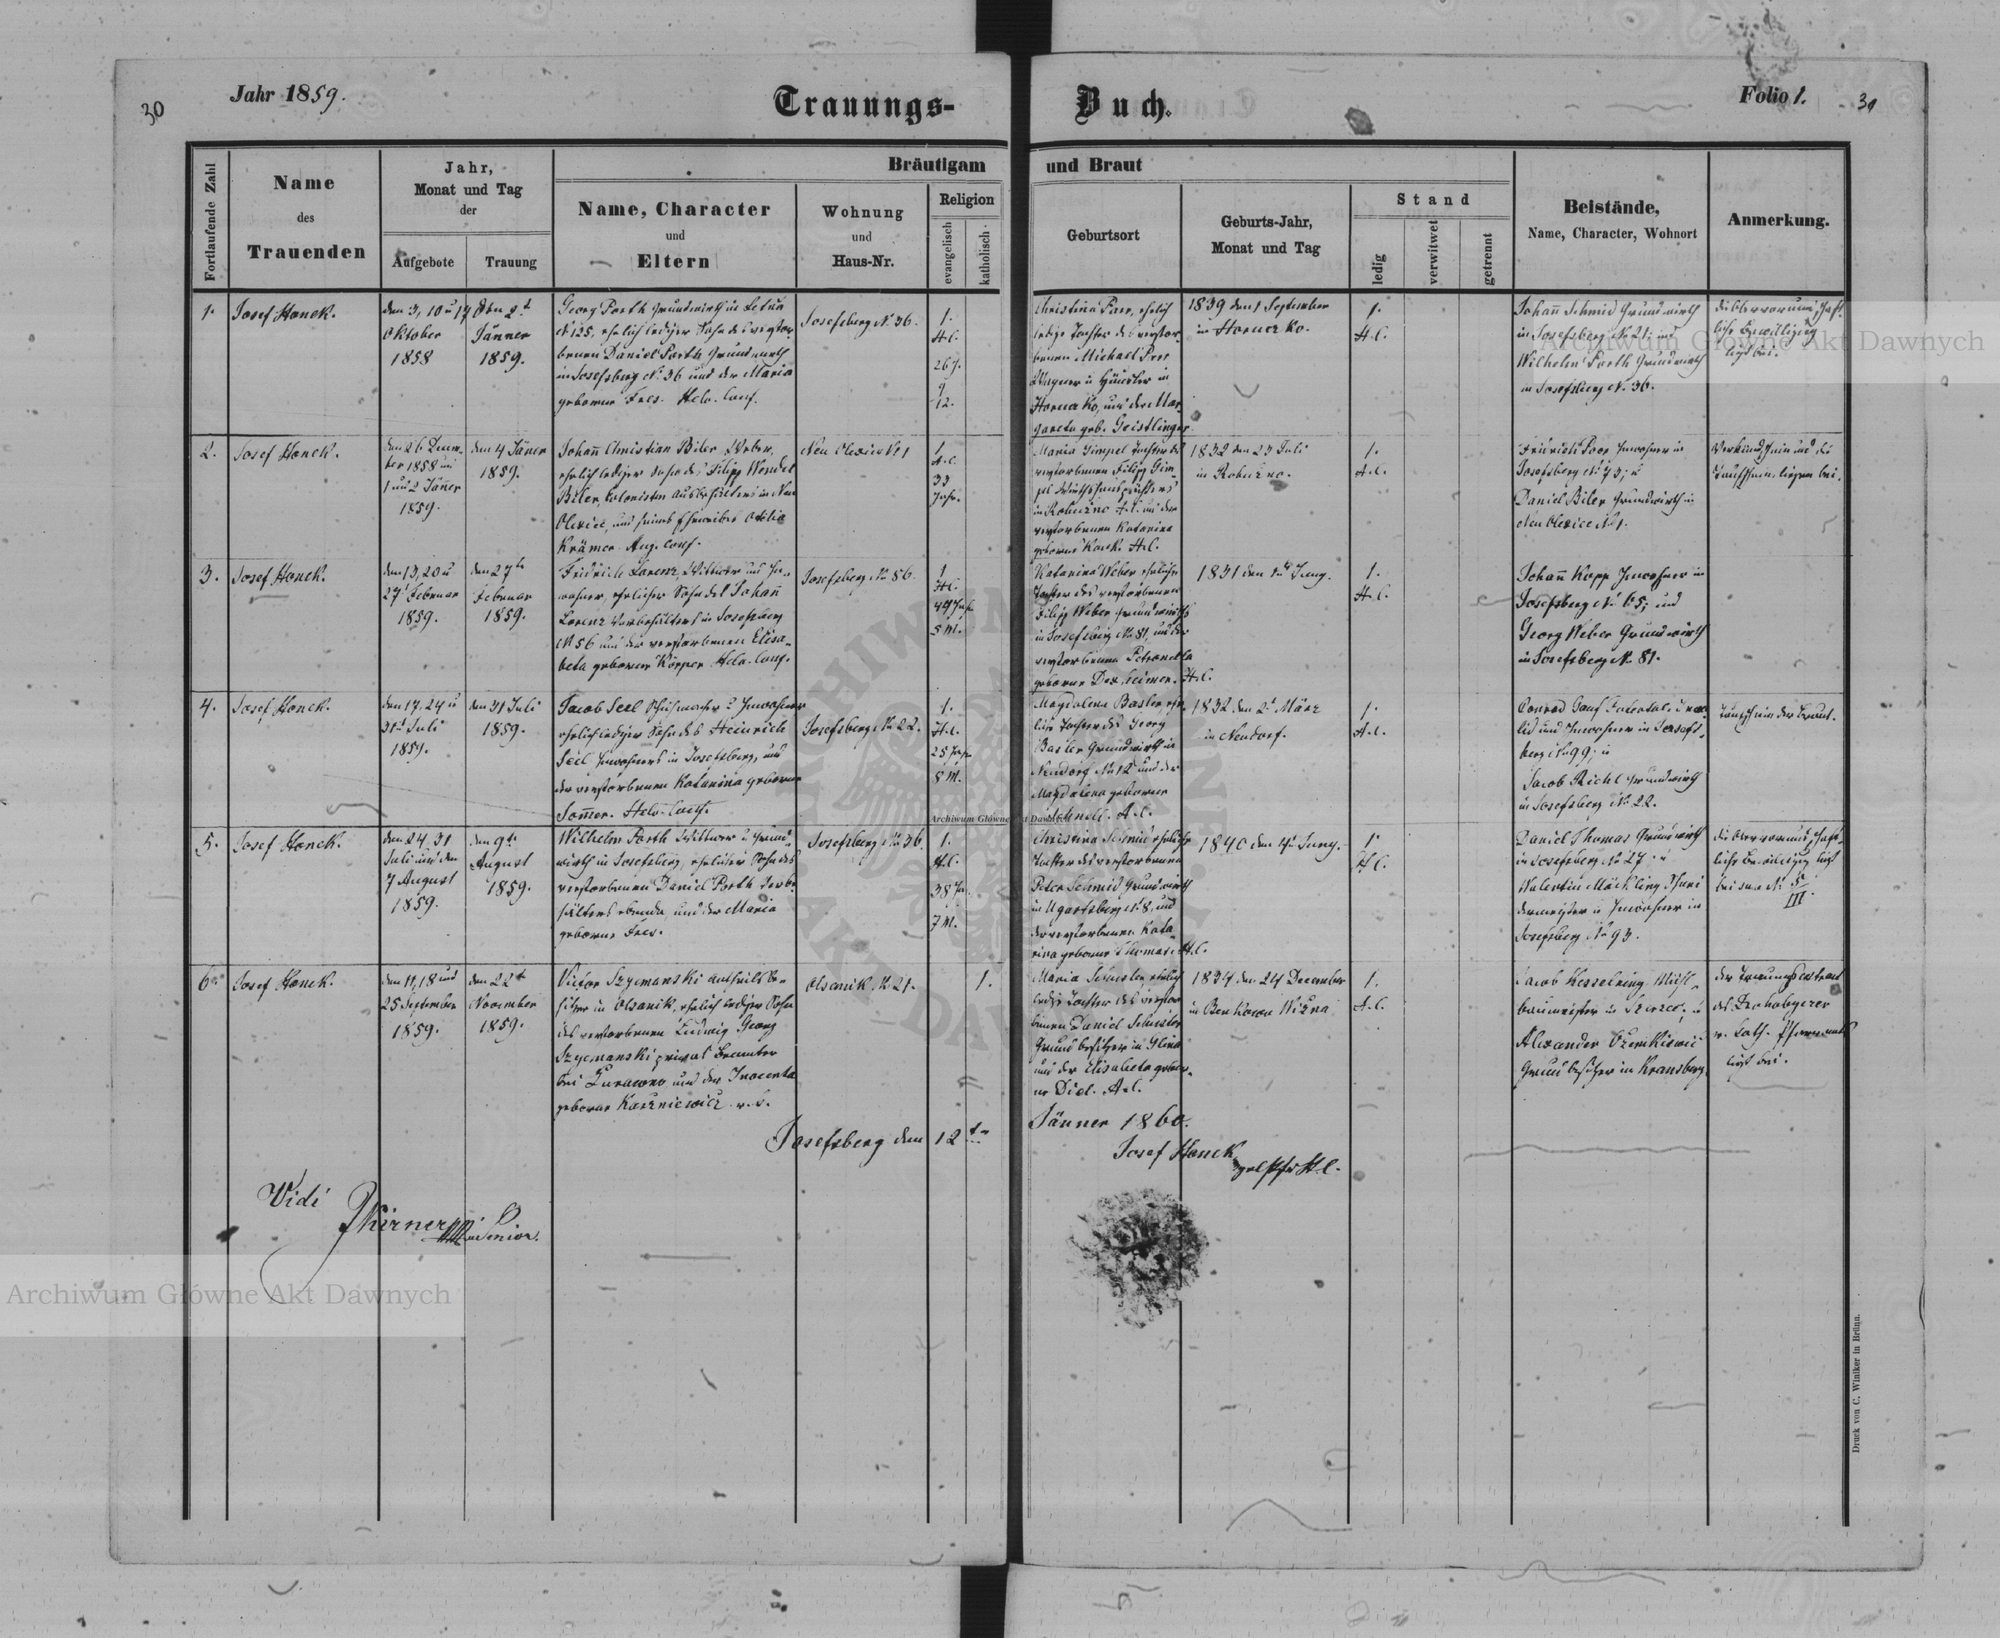 30
Jahr 1859.
Trauungs-
Buch.
Folio 1.
30
Fortlaufende Zahl
Name
des
Trauenden
Jahr,
Monat und Tag
der
Aufgebote
Trauung
Bräutigam
und Braut
Name, Character
und
Eltern
Wohnung
und
Haus-Nr.
Religion
evangelisch
katholisch
Geburtsort
Geburts-Jahr,
Monat und Tag
Stand
ledig
verwitwet
getrennt
Beistände,
Name, Character, Wohnort
Anmerkung.
1.
Josef Honek.
den 3, 10 u 17
Oktober
1858
den 2t
Jänner
1859.
Georg Porth Grundwirth in
N 125, ehelich lediger Sohn des verstor-
benen Daniel Porth Grundwirth
in Josefsberg N. 36 und der Maria
geborene Helv. Conf.
Josefsberg N. 36.
1.
H.C.
26 J.
9
12.
Christina ehelich
ledige Tochter des verstor-
benen Michael
Wagner u Häusler in
und der Mar-
gareta geb. Geistlinger
1839 den 1 September
in
1.
H.C.
Johann Schmid Grundwirth
in Josefsberg N. 21; und
Wilhelm Porth Grundwirth
in Josefsberg N. 36.
die Obervormundschaft-
liche Bewilligung
liegt bei.
2.
Josef Honek.
den 26 Decem-
ber 1858 und
1 und 2 Jäner
1859.
den 4 Jäner
1859.
Johann Christian Biler Weber,
ehelich lediger Sohn des Filipp Wendel
Biler, Colonisten in Neu
Olexice, und seines Eheweibes Otilia
Krämer. Aug. Conf.
Neu Olexice N 1
1
A.C.
33
Jahr.
Maria Gimpel Tochter des
verstorbenen Filipp Gim-
pel
in A.C. und der
verstorbenen Katarina
geborene H.C.
1832 den 23 Juli
in
1.
A.C.
Friedrich Inwohner in
Josefsberg N. 73; u
Daniel Biler Grundwirth in
Neu Olexice N 1.
Verkündschein und die
Taufschein liegen bei.
3.
Josef Honek.
den 13, 20 u
27 Februar
1859.
den 27t
Februar
1859.
Fridrich Lorenz, Wittwer und In-
wohner, ehelicher Sohn des Johann
Lorenz in Josefsberg
N 56 und der verstorbenen Elisa-
beta geborene Körper. Helv. Conf.
Josefsberg N 56.
1
H.C.
49 Jahr
5 M.
Katarina Weber eheliche
Tochter des verstorbenen
Filipp Weber Grundwirth
in Josefsberg N. 81, und der
verstorbenen Petronella
geborene Dexheimer. H.C.
1831 den Juny.
1.
H.C.
Johann Kopp Inwohner in
Josefsberg N. 65; und
Georg Weber Grundwirth
in Josefsberg N. 81.
4.
Josef Honek.
den 17, 24 u
31t Juli
1859.
den 31 Juli
1859.
Jacob Seel Schuhmacher u Inwohner
ehelich lediger Sohn des Heinrich
Seel Inwohners in Josefsberg, und
der verstorbenen Katarina geborene
Sommer. Helv. Conf.
Josefsberg N. 22.
1.
H.C.
25 Jahr
5 M.
Magdalena Basler ehe-
liche Tochter des Georg
Basler Grundwirth in
Neudorf N. 12 und der
Magdalena geborene
Schnell. A.C.
1832 den 2t März
in Neudorf.
1.
A.C.
Conrad
und Inwohner in Josefs-
berg N 99; u
Jacob Richl Grundwirth
in Josefsberg N. 22.
Taufschein der Braut.
5.
Josef Honek.
den 24, 31
Juli und den
7 August
1859.
den 9t
August
1859.
Wilhelm Porth Wittwer u Grund-
wirth in Josefsberg, ehelicher Sohn des
verstorbenen Daniel Porth
und der Maria
geborene
Josefsberg N. 36.
1.
H.C.
38 Jahr
7 M.
Christina Schmid eheliche
Tochter des verstorbenen
Peter Schmid Grundwirth
in Ugartsberg N. 8, und
der verstorbenen Kata-
rina geborene Thomas. H.C.
1840 den 4t Juny.
1.
H.C.
Daniel Thomas Grundwirth
in Josefsberg N. 27; u
Walentin Mäckling Schnei
dermeister u Inwohner in
Josefsberg N 93.
die Obervormundschaft-
liche Bewilligung liegt
bei
III.
6.
Josef Honek.
den 11, 18 und
25 September
1859.
den 22t
November
1859.
Victor Szymanski Antheilsbe-
sitzer in Olsanik, ehelich lediger Sohn
des verstorbenen Ludwig Georg
Szymanski privat Beamter
bei und der Inocenta
geborene
Olsanik N. 21.
1.
Maria Schuster, ehelich
ledige Tochter des verstor
benen Daniel Schuster
Grundbesitzer in
und der Elisabeta gebor-
ne Diel. A.C.
1834 den 24 December
in Benkowa Wiznia
1.
A.C.
Jacob Kesselring Mühl-
baumeister in u
Alexander
Grundbesitzer in Kranzberg
der Trauungsextract
des Drohobyczer
r. cath. Pfarramts
liegt bei.
Josefsberg den 12t
Jänner 1860.
Josef Honek
Vidi
Senior.
Archiwum Główne Akt Dawnych
Archiwum Główne Akt Dawnych
Archiwum Główne Akt Dawnych
Druck von C. Winiker in Brünn.